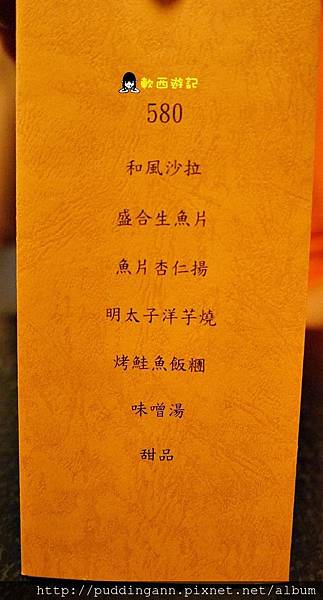 軟西遊記
580
和風沙拉
盛合生魚片
魚片杏仁揚
明太子洋芋燒
烤鮭魚飯糰
味噌湯
甜品
http://puddingann.pixnet.net/album